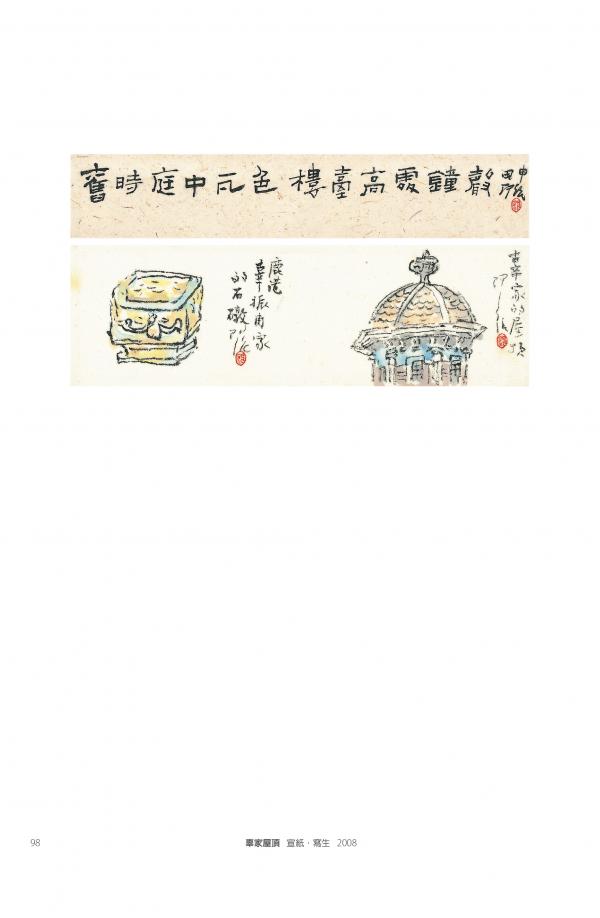 舊時庭中瓦色樓臺高處鐘聲
鹿港
辜振甫家
的石礅
辜家的屋頂
98
辜家屋頂 宣紙・寫生 2008